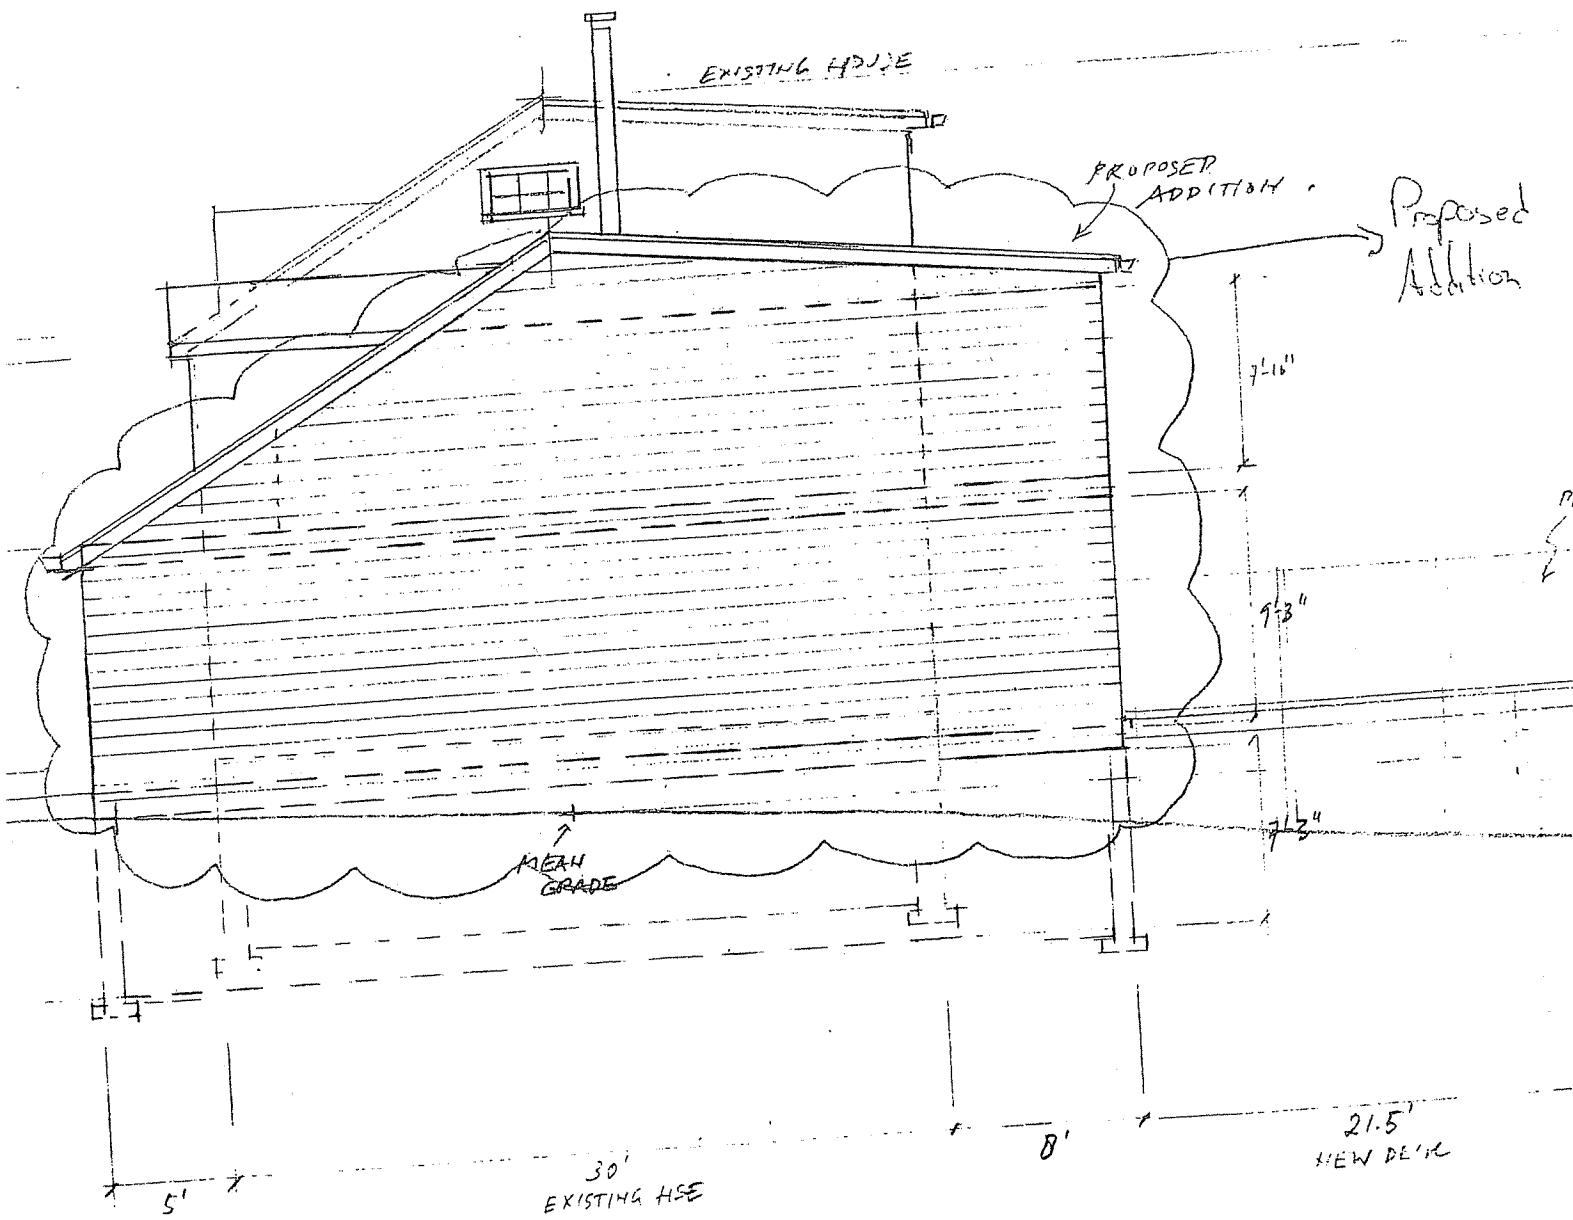 EXISTING HOUSE
PROPOSED
ADDITION
Proposed
Addition
9'-3"
7'-3"
MEAN
GRADE
5'
30'
EXISTING HSE
8'
21.5'
NEW DECK